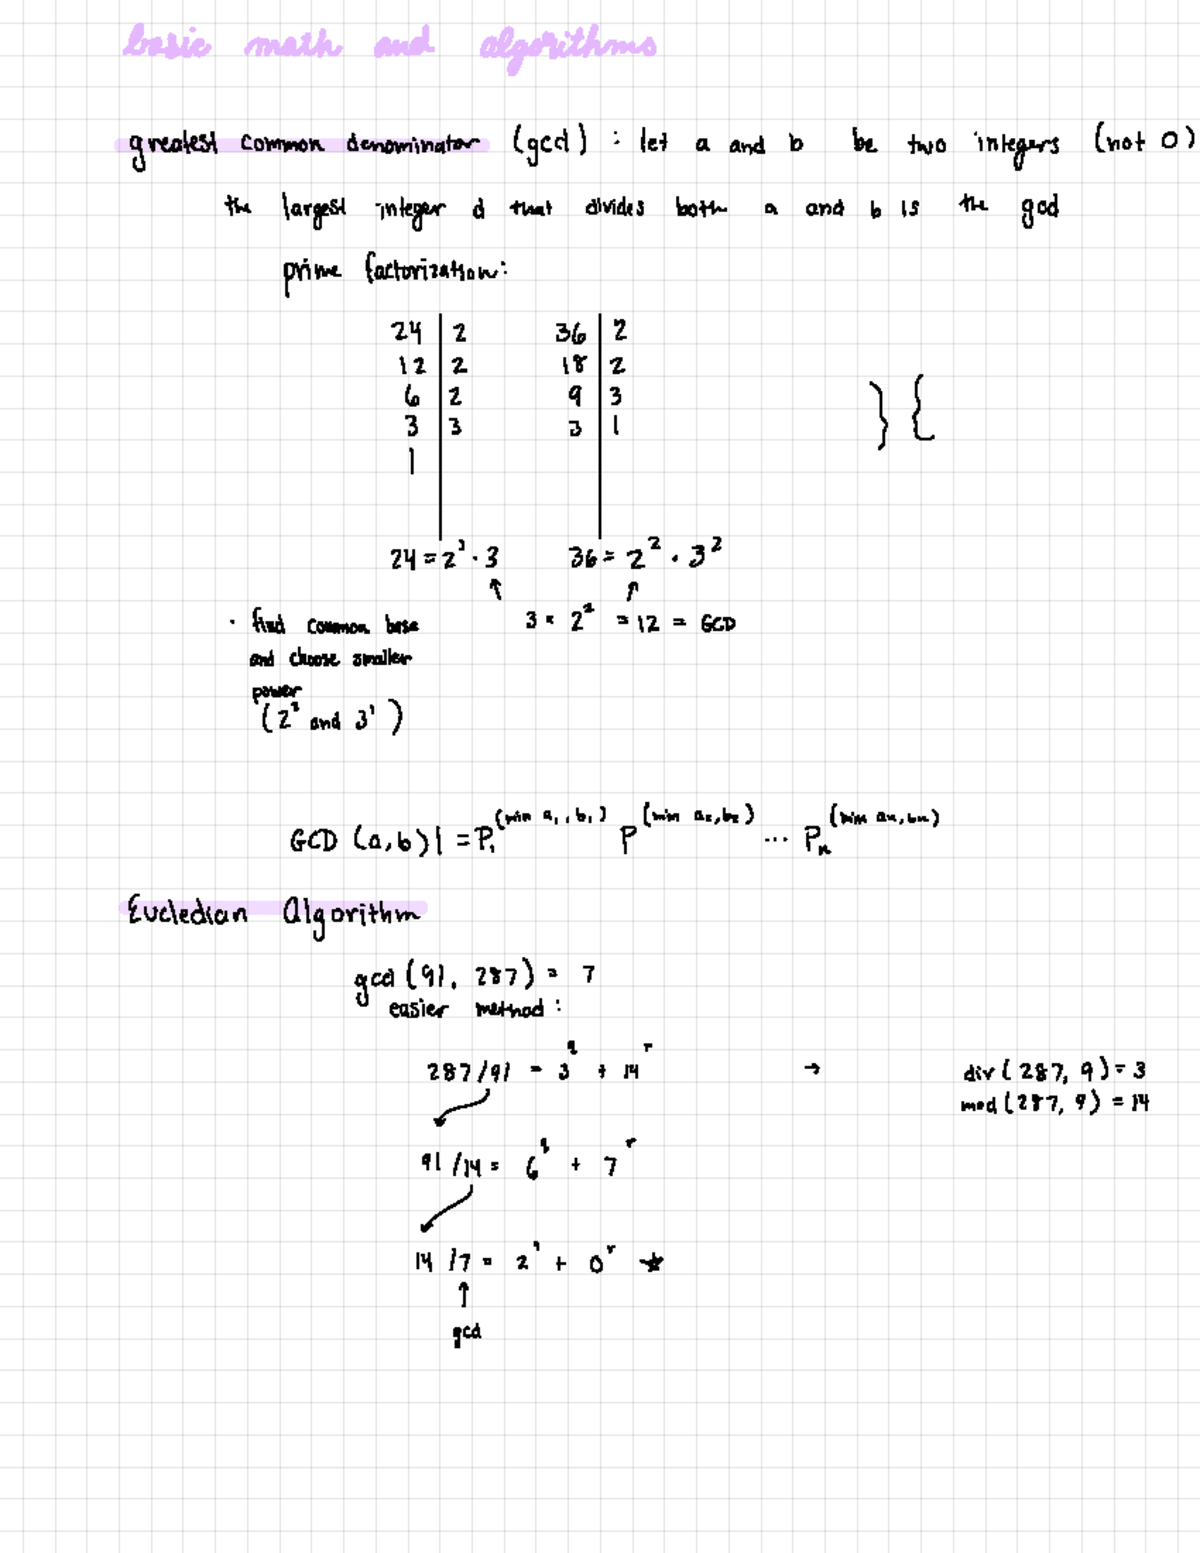 basic math and algorithms
greatest common denominator (gcd) : let a and b be two integers (not 0)
the largest integer d that divides both a and b is the gcd
prime factorization:
24 | 2 36 | 2
12 | 2 18 | 2
6 | 2 9 | 3
3 | 3 3 | 1
1
} {
24 = 2³ · 3 36 = 2² · 3²
↑ ↑
· find common base 3 × 2² = 12 = GCD
and choose smaller
power
(2² and 3¹)
GCD (a,b)| = P₁^(min a₁, b₁) P^(min a₂, b₂) ... Pₙ^(min aₙ, bₙ)
Eucledian Algorithm
gcd (91, 287) = 7
easier method :
287/91 = 3^q + 14^r → div (287, 9) = 3
mod (287, 9) = 14
91/14 = 6^q + 7^r
14/7 = 2^q + 0^r ★
↑
gcd